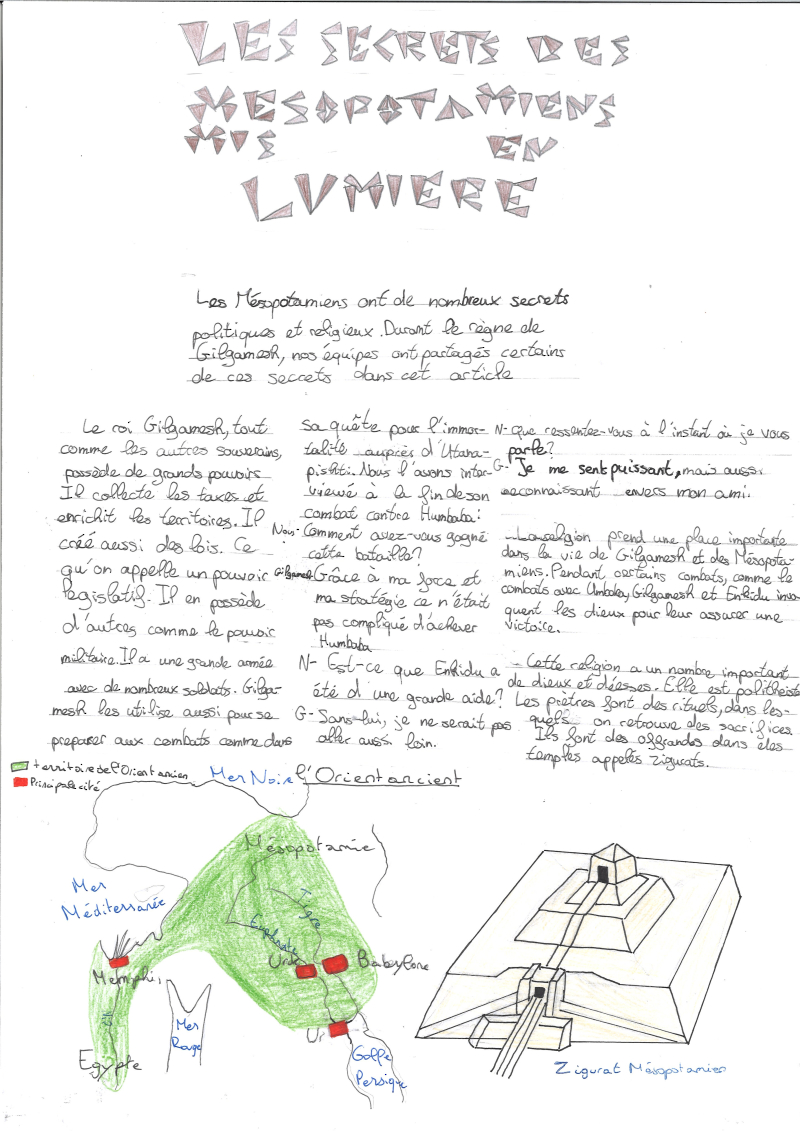 LES SECRETS DES
MESOPOTAMIENS
MIS EN
LUMIERE
Les Mésopotamiens ont de nombreux secrets
politiques et religieux. Durant le règne de
Gilgamesh, nos équipes ont partagés certains
de ces secrets dans cet article
Le roi Gilgamesh, tout
comme les autres souverains,
possède de grands pouvoirs
Il collecte les taxes et
enrichit les territoires. Il
créé aussi des lois. Ce
qu'on appelle un pouvoir
legislatif. Il en possède
d'autres comme le pouvoir
militaire. Il a une grande armée
avec de nombreux soldats. Gilga-
mesh les utilise aussi pour se
preparer aux combats comme dans
sa quête pour l'immor-
talité auprès d'Utana-
pishti. Nous l'avons inter-
viewé à la fin de son
combat contre Humbaba:
Nous- Comment avez-vous gagné
cette bataille?
Gilgamesh- Grâce à ma force et
ma stratégie ce n'était
pas compliqué d'achever
Humbaba
N- Est-ce que Enkidu a
été d'une grande aide?
G- Sans-lui, je ne serait pas
aller aussi loin.
N- Que ressentez-vous à l'instant où je vous
parle?
G- Je me sent puissant, mais aussi
reconnaissant envers mon ami.
La religion prend une place importante
dans la vie de Gilgamesh et des Mésopota-
miens. Pendant certains combats, comme le
combats avec Gilgamesh et Enkidu invo-
quent les dieux pour leur assurer une
victoire.
Cette religion a un nombre important
de dieux et déesses. Elle est politheiste
Les prêtres font des rituels, dans les-
quels on retrouve des sacrifices
Ils font des offrandes dans des
temples appelés zigurats.
territoire de l'Orient ancien
Principale cité
Mer Noire
l'Orient ancient
Mésopotamie
Mer
Méditerranée
Tigre
Euphrate
Uruk
Babylone
Memphis
Ur
Mer
Rouge
Golfe
Persique
Egypte
Zigurat Mésopotamien